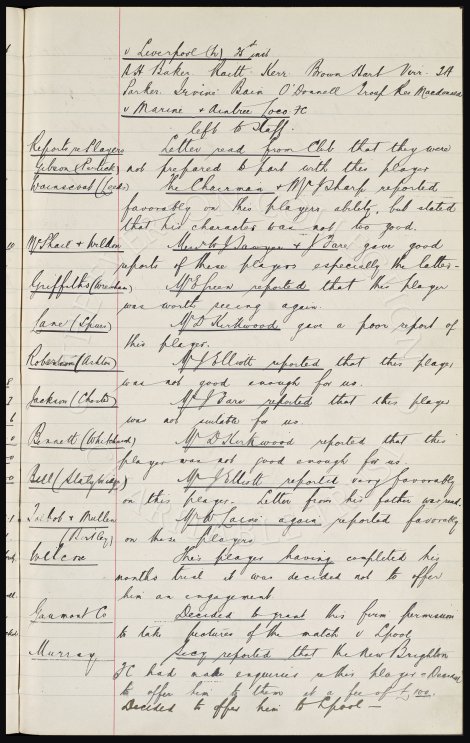 v Liverpool (h) 25th inst
A H Baker. Raitt. Kerr. Brown Hart Virr. J A
Parker. Irvine Bain O'Donnell Troup Res Macdonald
v Marine & Aintree Loco. FC
left to staff.
Reports re Players Letter read from Club that they were
Gibson (Partick) not prepared to part with this player
Wainscoat (Leeds) The Chairman & Mr J Sharp reported
favorably on this players ability, but stated
that his character was not too good.
McPhael & Weldon Messrs J Sawyer & J Fare gave good
reports of these players especially the latter -
Griffiths (Wrexham) Mr E Green reported that this player
was worth seeing again.
Lane (Spurs) Mr D Kirkwood gave a poor report of
this player.
Robertson (Ashton) Mr J Elliott reported that this player
was not good enough for us.
Jackson (Chester) Mr J Fare reported that this player
was not suitable for us.
Bennett (Whitchurch) Mr D Kirkwood reported that this
player was not good enough for us
Bell (Stalybridge) Mr J Elliott reported very favorably
on this player. Letter from his father was read.
& Mullen Mr W again reported favorably
on these players
Wilcox This player having completed his
months trial it was decided not to offer
him an engagement
Gaumont Co Decided to grant this firm permission
to take pictures of the match v Lpool.
Murray Secy reported that the New Brighton
FC had made enquiries re this player - Decided
to offer him to them at a fee of £100.
Decided to offer him to Lpool -